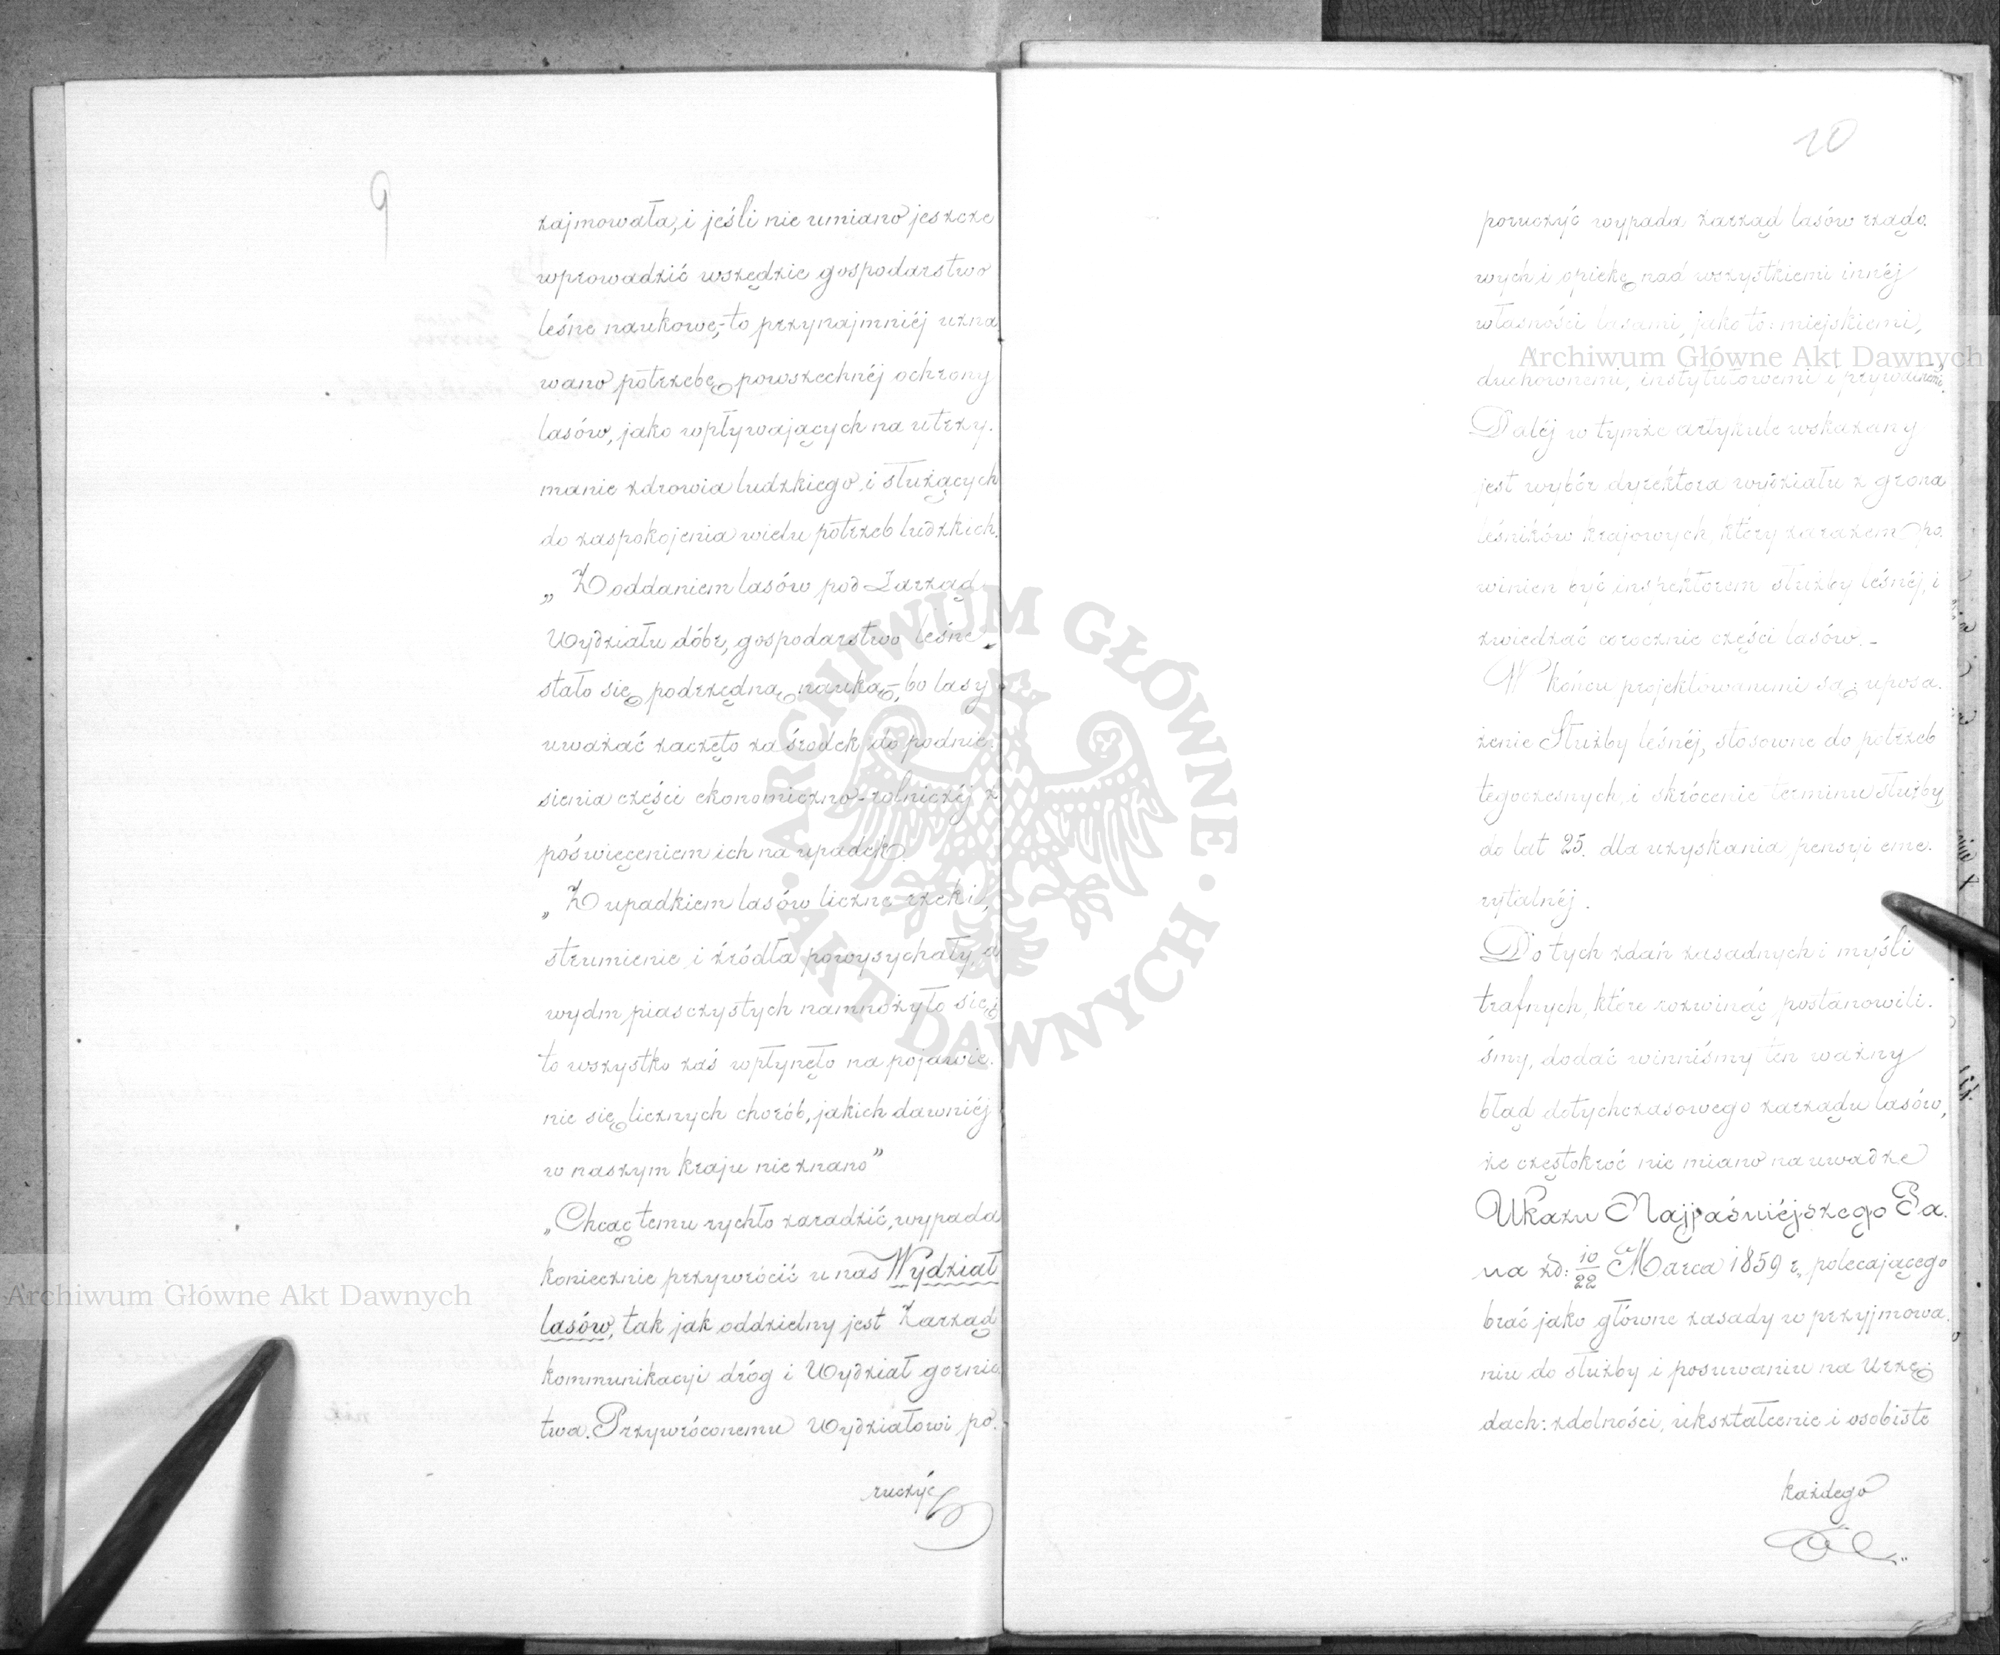 9
zajmowała; i jeśli nie umiano jeszcze
wprowadzić wszędzie gospodarstwo
leśne naukowe,- to przynajmniéj uzna
wano potrzebę powszechnéj ochrony
lasów, jako wpływających na utrzy-
manie zdrowia ludzkiego, i służących
do zaspokojenia wielu potrzeb ludzkich.
„Z oddaniem lasów pod Zarząd
Wydziału dóbr, gospodarstwo leśne
stało się podrzędną nauką,- bo lasy
uważać zaczęto za środek do podnie-
sienia części ekonomiczno-rolniczéj z
poświęceniem ich na upadek.
„Z upadkiem lasów liczne rzeki,
strumienie i źródła powysychały, a
wydm piasczystych namnożyło się,
to wszystko zaś wpłynęło na pojawie-
nie się licznych chorób, jakich dawniéj
w naszym kraju nie znano”
„Chcąc temu rychło zaradzić, wypada
koniecznie przywrócić u nas Wydział
lasów, tak jak oddzielny jest Zarząd
kommunikacyi dróg i Wydział gornic
twa. Przywróconemu Wydziałowi po-
ruczyć
10
poruczyć wypada zarząd lasów rządo-
wych i opiekę nad wszystkiemi innéj
własności lasami, jako to: miejskiemi,
duchownemi, instytutowemi i prywatnemi.
Daléj w tymże artykule wskazany
jest wybór dyrektora wydziału z grona
leśników krajowych, który zarazem po-
winien być inspektorem służby leśnéj, i
zwiedzać corocznie części lasów.-
W końcu projektowanemi są: uposa-
żenie Służby leśnéj, stosowne do potrzeb
tegoczesnych, i skrócenie terminu służby
do lat 25. dla uzyskania pensyi eme-
rytalnéj.
Do tych zdań zasadnych i myśli
trafnych, które rozwinąć postanowili-
śmy, dodać winniśmy ten ważny
błąd dotychczasowego zarządu lasów,
że częstokroć nie miano na uwadze
Ukazu Najjaśniéjszego Pa-
na zd: 10/22 Marca 1859 r, polecającego
brać jako główne zasady w przyjmowa-
niu do służby i posuwaniu na Urzę-
dach: zdolności, ukształcenie i osobiste
każdego
Archiwum Główne Akt Dawnych
Archiwum Główne Akt Dawnych
ARCHIWUM GŁÓWNE · AKT DAWNYCH ·